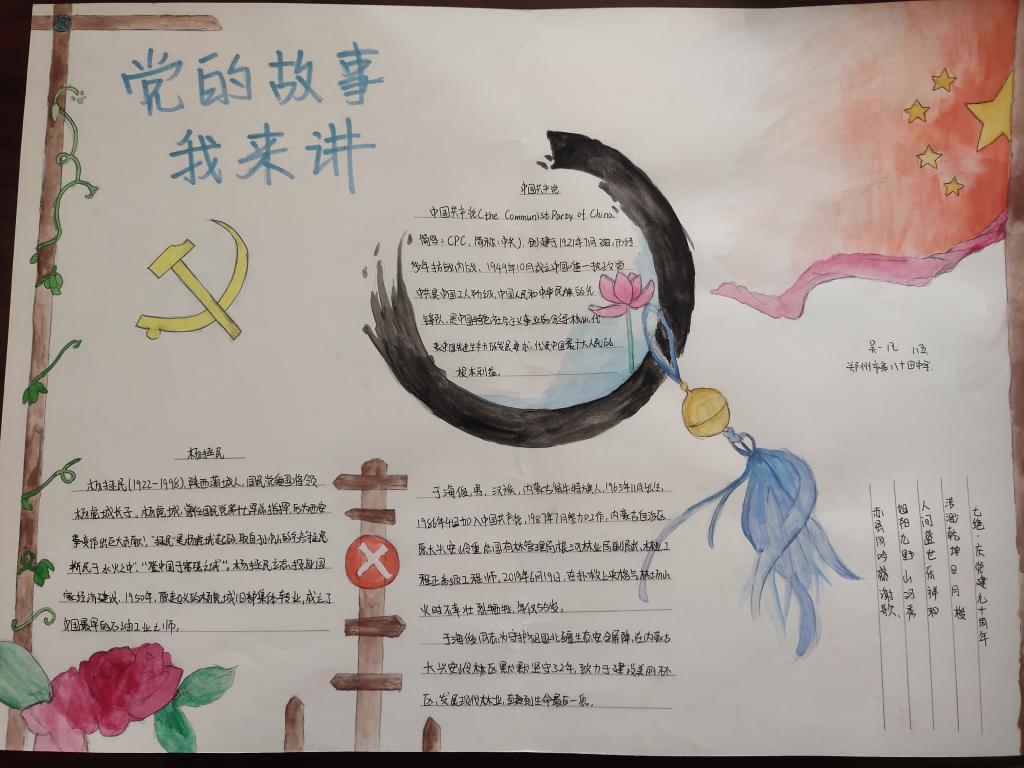 党的故事
我来讲
中国共产党
中国共产党(the Communist Party of China
简写:CPC,简称:中共),创建于1921年7月23日,历经
多年抗战内战,1949年10月成立中国唯一执政党
中共是中国工人阶级,中国人民和中华民族的先
锋队,是中国特色社会主义事业的领导核心,代
表中国先进生产力的发展要求,代表中国最广大人民的
根本利益。
吴一凡 八五
郑州市第八十四中学
杨拯民
杨拯民(1922-1998),陕西蒲城人,国民党爱国将领
杨虎城长子。杨虎城,曾任国民党第十七路总指挥,后为西安
事变作出巨大贡献,"拯民"是杨虎城起的,取自孙中山的不忘"拯民
斯民于水火之中","登中国于富强之域"。杨拯民立志投身国
家经济建设,1950年,
中国最早的石油工业之师。
于海俊,男,汉族,内蒙古翁牛特旗人,1963年11月出生,
1986年4月加入中国共产党,1987年7月参加工作,内蒙古自治区
原大兴安岭重点国有林管理局根河林业局副局长,林业工
程正高级工程师。2019年6月19日,在扑救上央格气林场山
火时不幸壮烈牺牲,年仅55岁。
于海俊同志为守护祖国北疆生态安全屏障,在内蒙古
大兴安岭林区默默坚守32年,致力于建设美丽林
区,发展现代林业,直到生命最后一息。
七绝·庆党建九十周年
浩瀚乾坤日月梭
人间盛世乐祥和
朝阳九野山河秀
赤县同吟盛谢歌